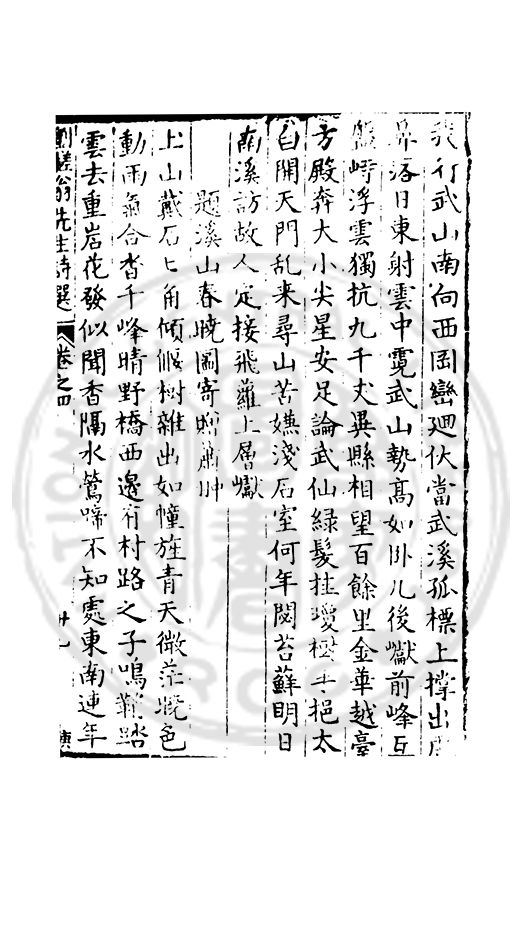 我行武山南向西岡巒廻伏當武溪孤標上撑出
鼻落日東射雲中霓武山勢髙如卧几後巘前峰互
盤峙浮雲獨抗九千丈異縣相望百餘里金華越臺
方殿奔大小尖星安足論武仙緑髮挂瓊樹手挹太
白開天門乱来尋山苦嫌淺石室何年閟苔蘚明日
南溪訪故人定接飛蘿上層巘
題溪山春曉圖寄贈蕭翀
上山戴石七角傾偃樹雜出如幢旌青天微茫曉色
動雨氣合沓千峰晴野橋西邊有村路之子鳴鞭踏
雲去重岩花發似聞香隔水鶯啼不知處東南連年
劉槎翁先生詩選 卷之四